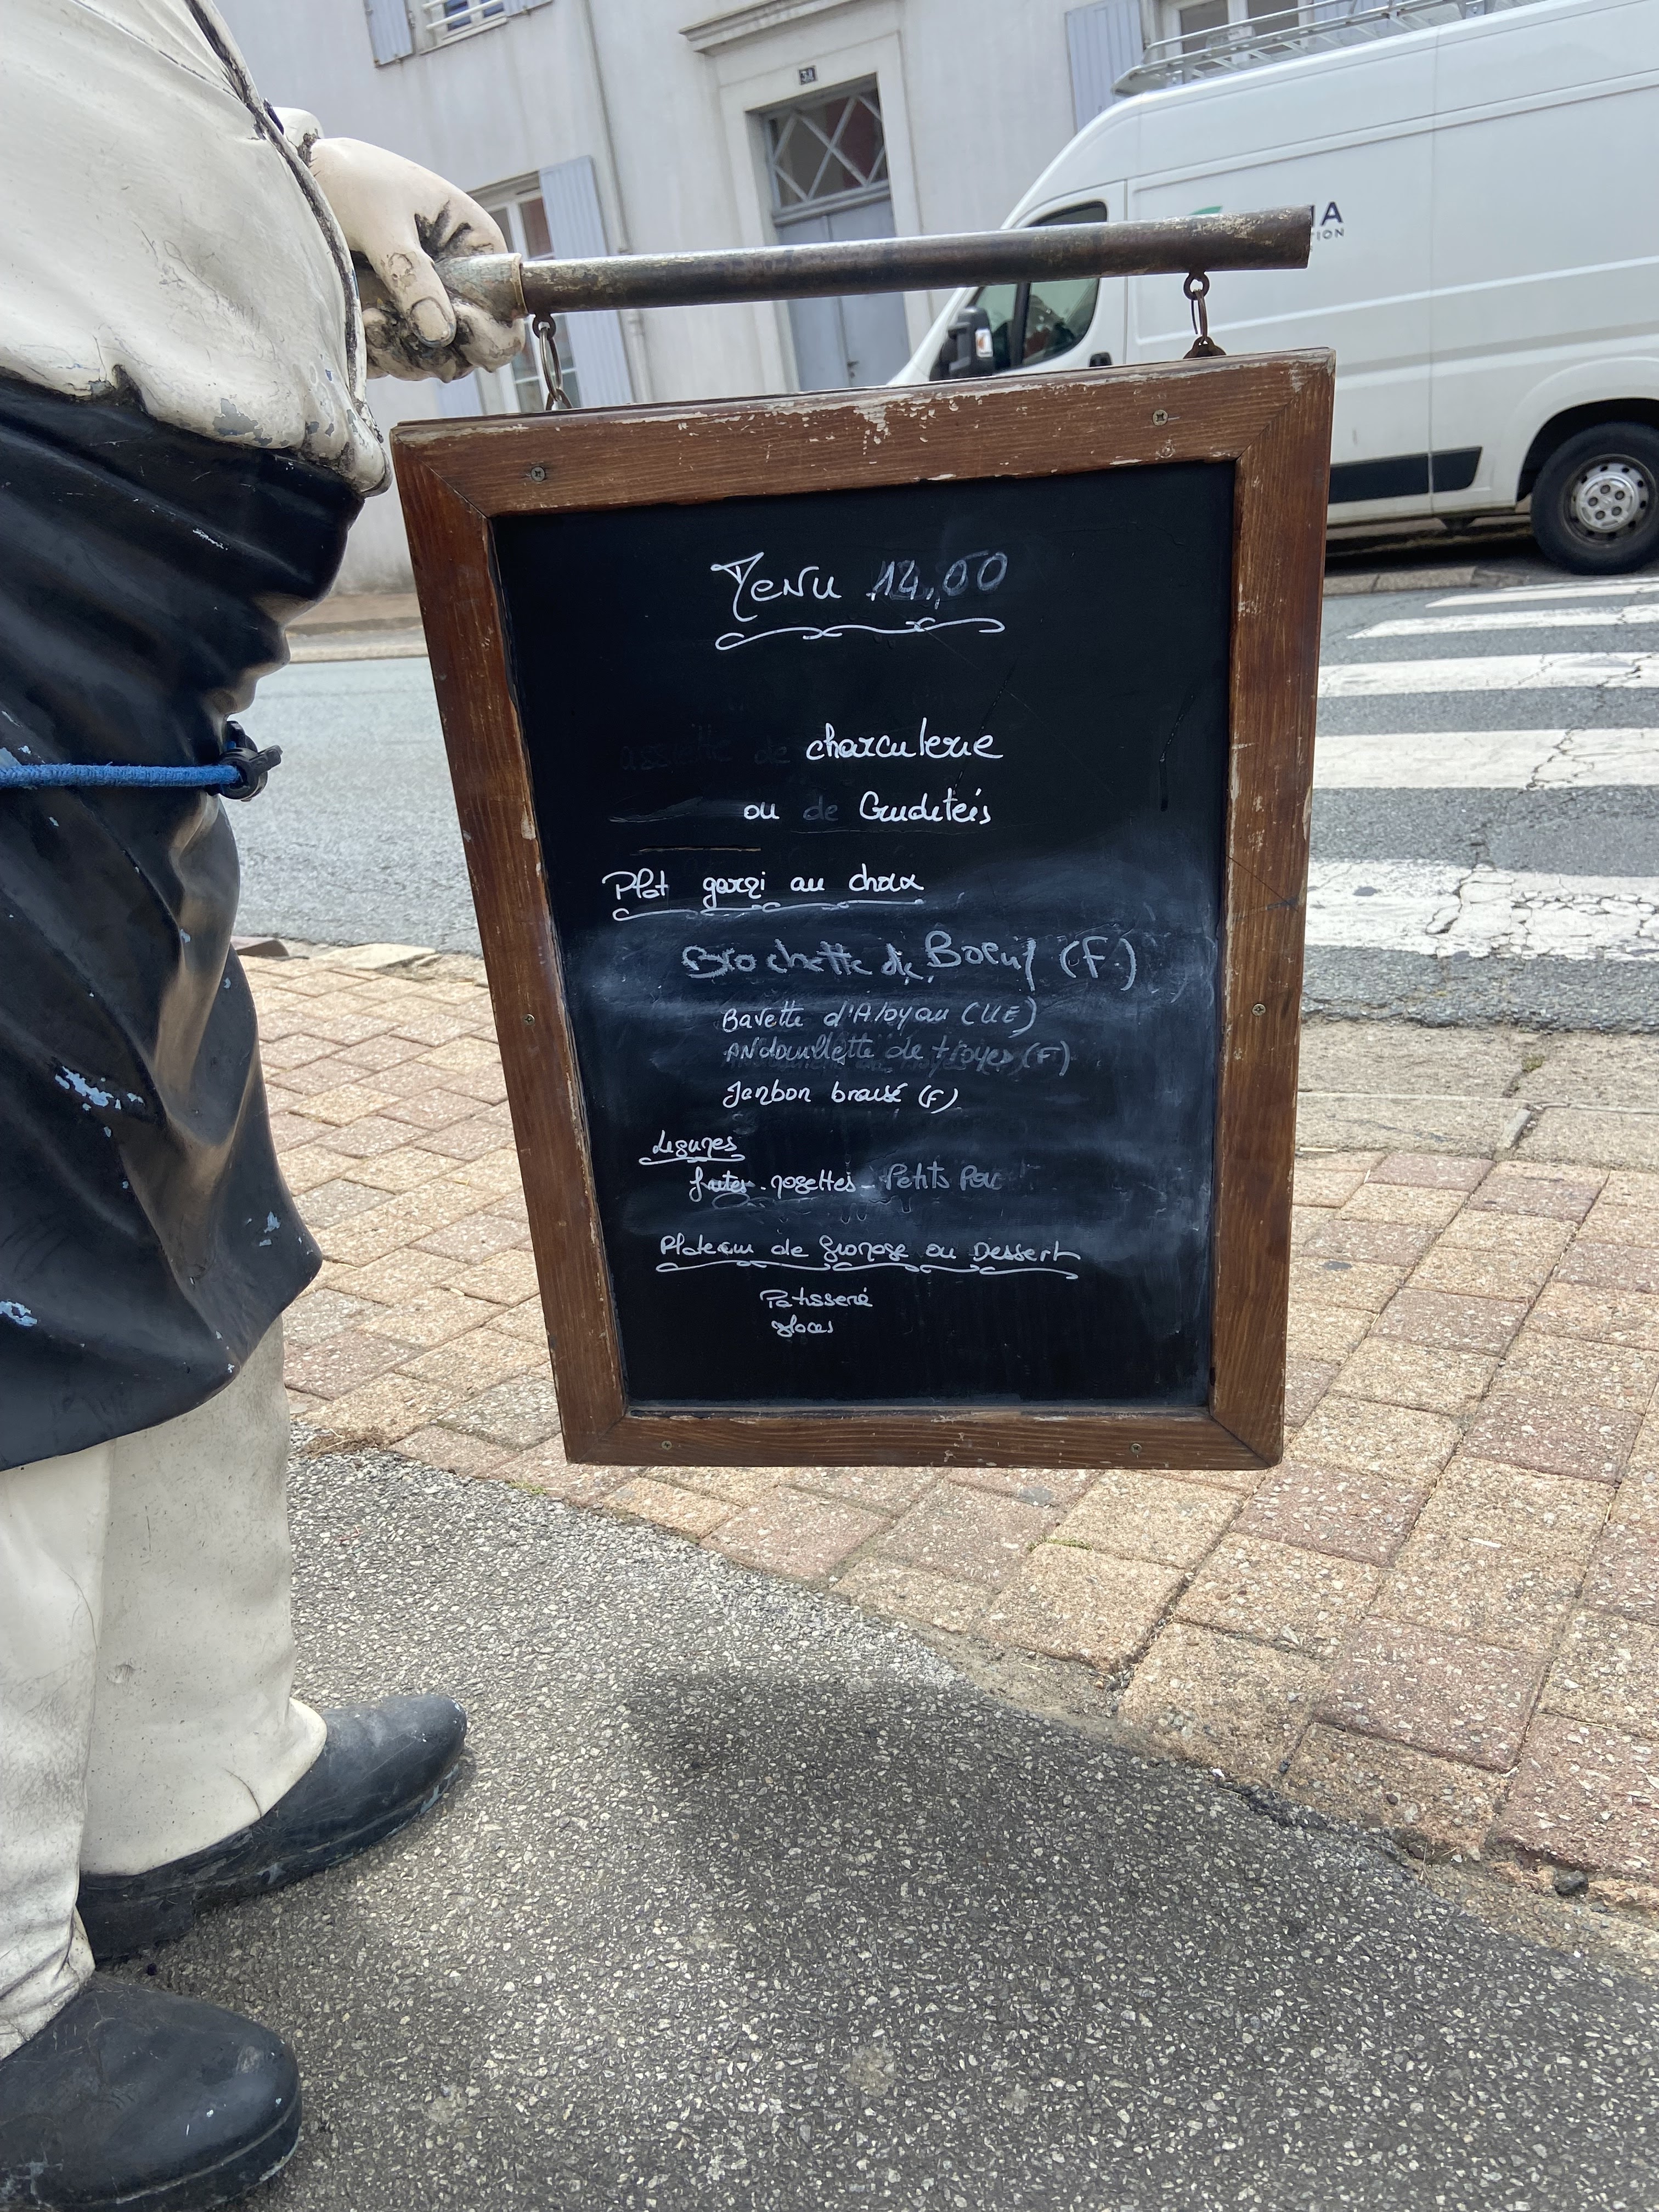 38
Menu 14,00
assiette de charcuterie
ou de Crudités
Plat garni au choix
Brochette de Boeuf (F)
Bavette d'Aloyau (UE)
ANdouillette de troyes (F)
Jambon braisé (F)
Légumes
frites - mogettes - Petits Pois
Plateau de fromage ou Dessert
Patisserie
glaces